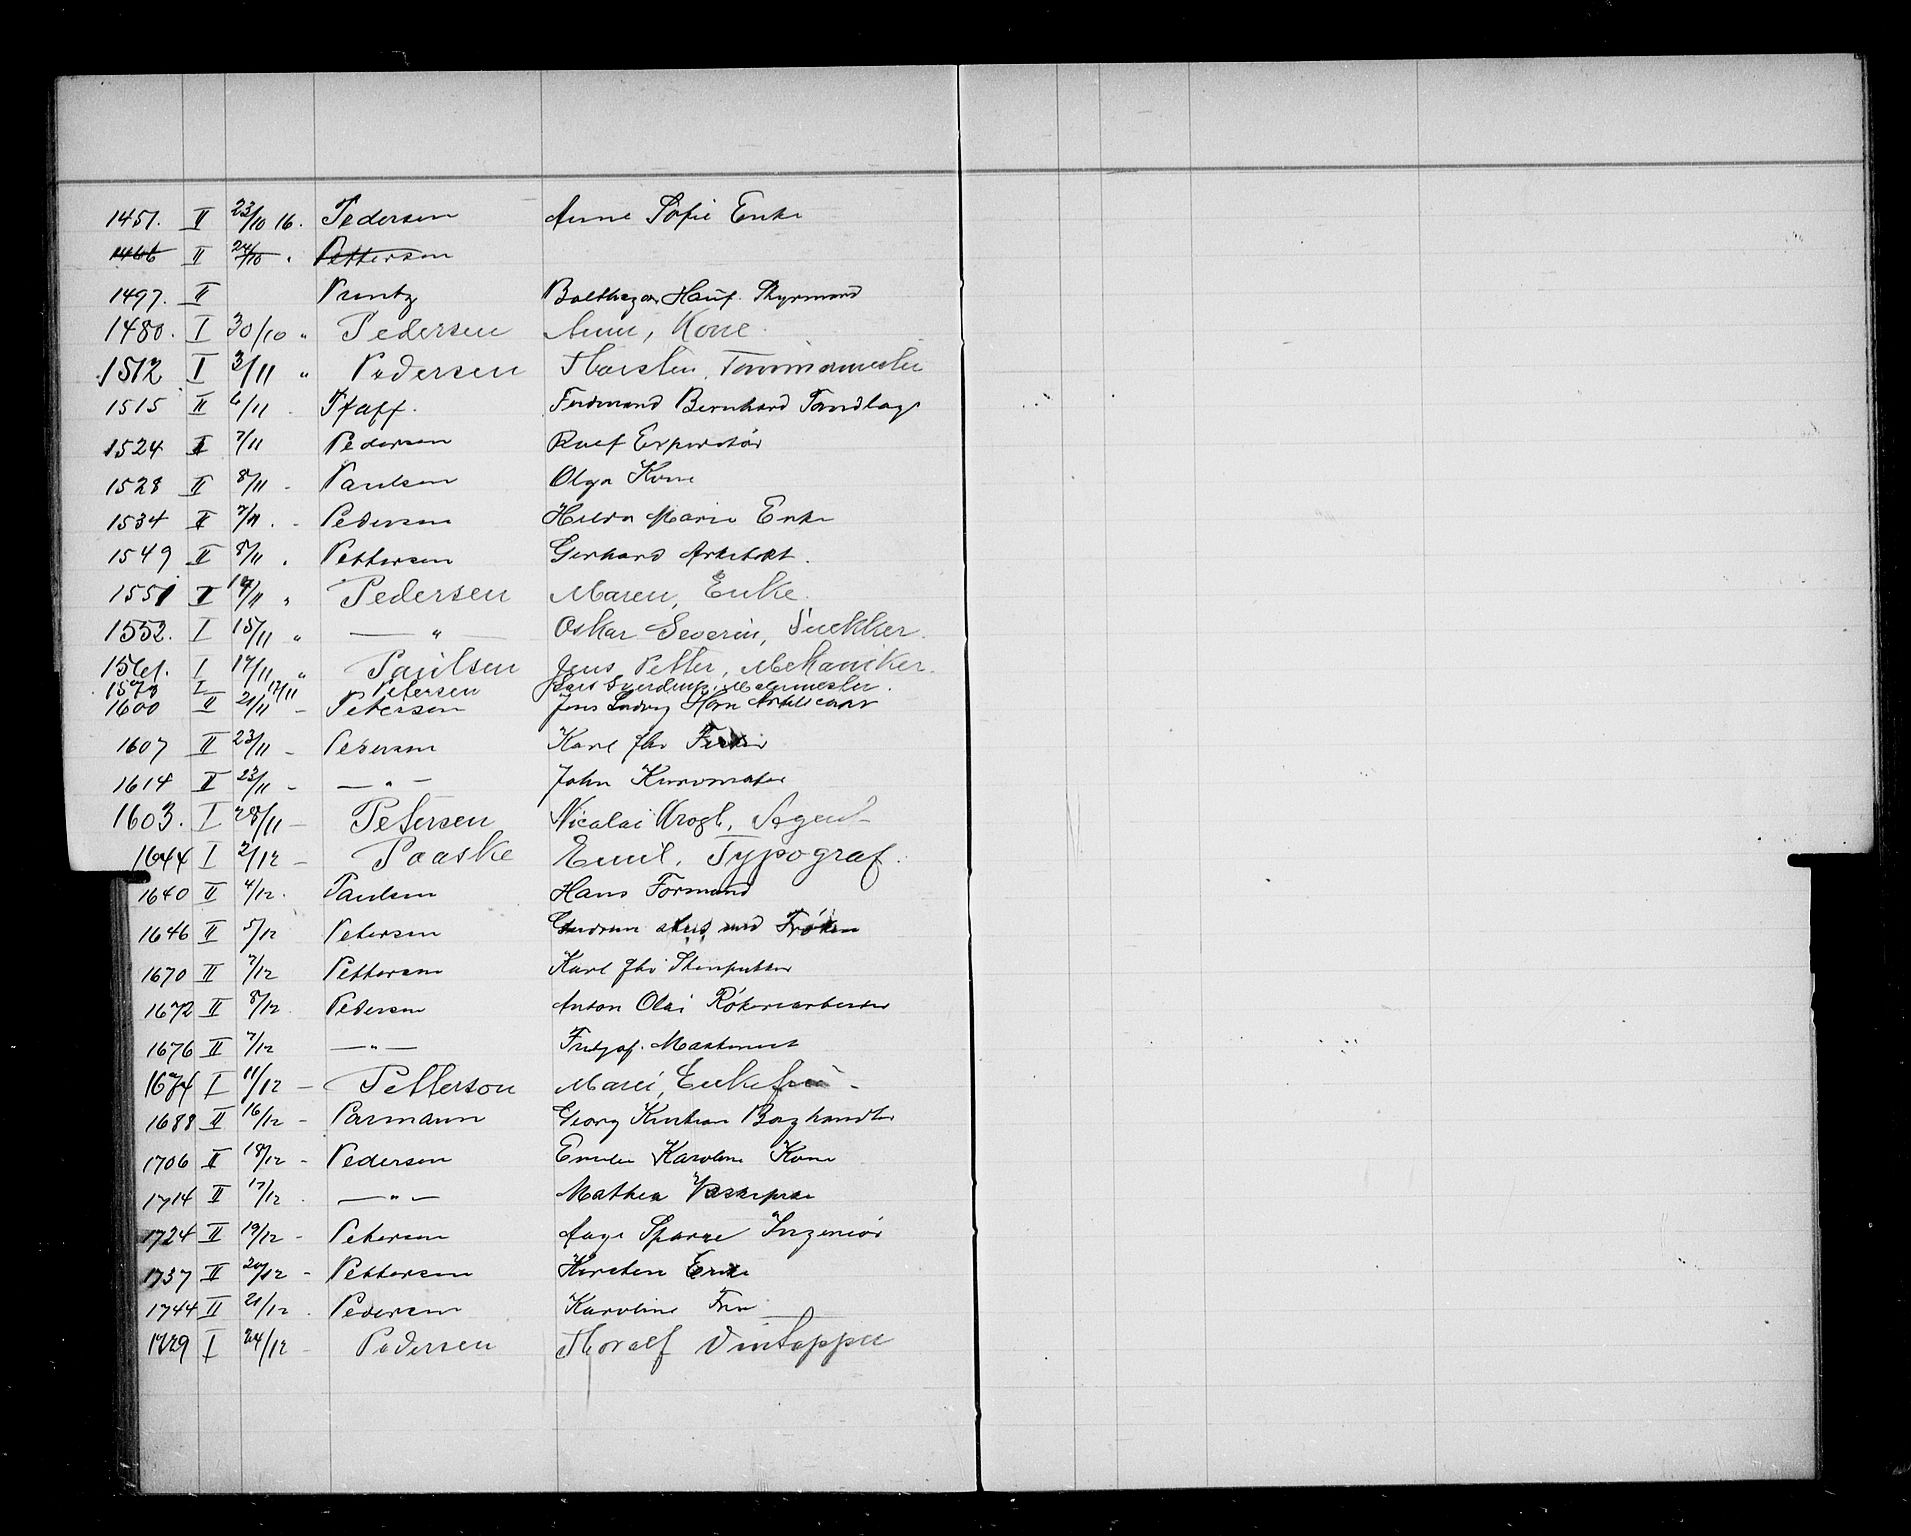 1451. II 23/10 16. Pedersen Anne Sofie Enke
1466 II 24/10 " Pettersen
1497. II Printz Balthazar Hauf.
1480. I 30/10 " Pedersen Anna, Kone.
1512 I 3/11 " Pedersen Thorsten, Tømmermester
1515 II 6/11 Pfaff. Ferdinand Bernhard Tandlæge
1524 II 7/11 Pedersen Rolf Expeditør
1528 II 8/11 - Paulsen Olga Kone
1534 II 7/11 . - Pedersen Hilda Marie Enke
1549 II 8/11 . Pettersen Gerhard Arkitekt.
1551 I 14/11 " Pedersen Maren, Enke.
1552. I 15/11 " — " — Oskar Severin, Snekker.
1561. I 17/11 " Paulsen Jens Petter, Mekaniker.
1578 I 17/11 Petersen Lars Malermester.
1600 II 21/11 - Petersen Jens Ludvig Horn
1607 II 23/11 - Pedersen Karl Jhs
1614 II 23/11 - — " — John Kurvmaker
1603. I 28/11 - Petersen Nicolai Krogh, Agent
1644 I 2/12 - Paaske Emil, Typograf.
1640 II 4/12. Paulsen Hans Formand
1646 II 5/12 Petersen Gudrun Frøken
1670 II 7/12 Pettersen Karl Jhs
1672 II 8/12 Pedersen Anton Olai
1676 II 7/12 — " — Fritjof. Maskinist
1674 I 11/12 - Petterson Marie, Enkefru -
1688 II 16/12 - Parmann Georg Kristian Boghandler
1706 II 18/12 - Pedersen Emilie Karoline Kone
1714 II 17/12 . — " — Mathea Vaskepike
1724 II 19/12 - Petersen Aage Sparre Ingeniør
1737 II 20/12 - Pettersen Kirsten Enke
1744 II 21/12 . Pedersen Karoline Fru
1729 I 24/12 - Pedersen Thoralf Vintapper